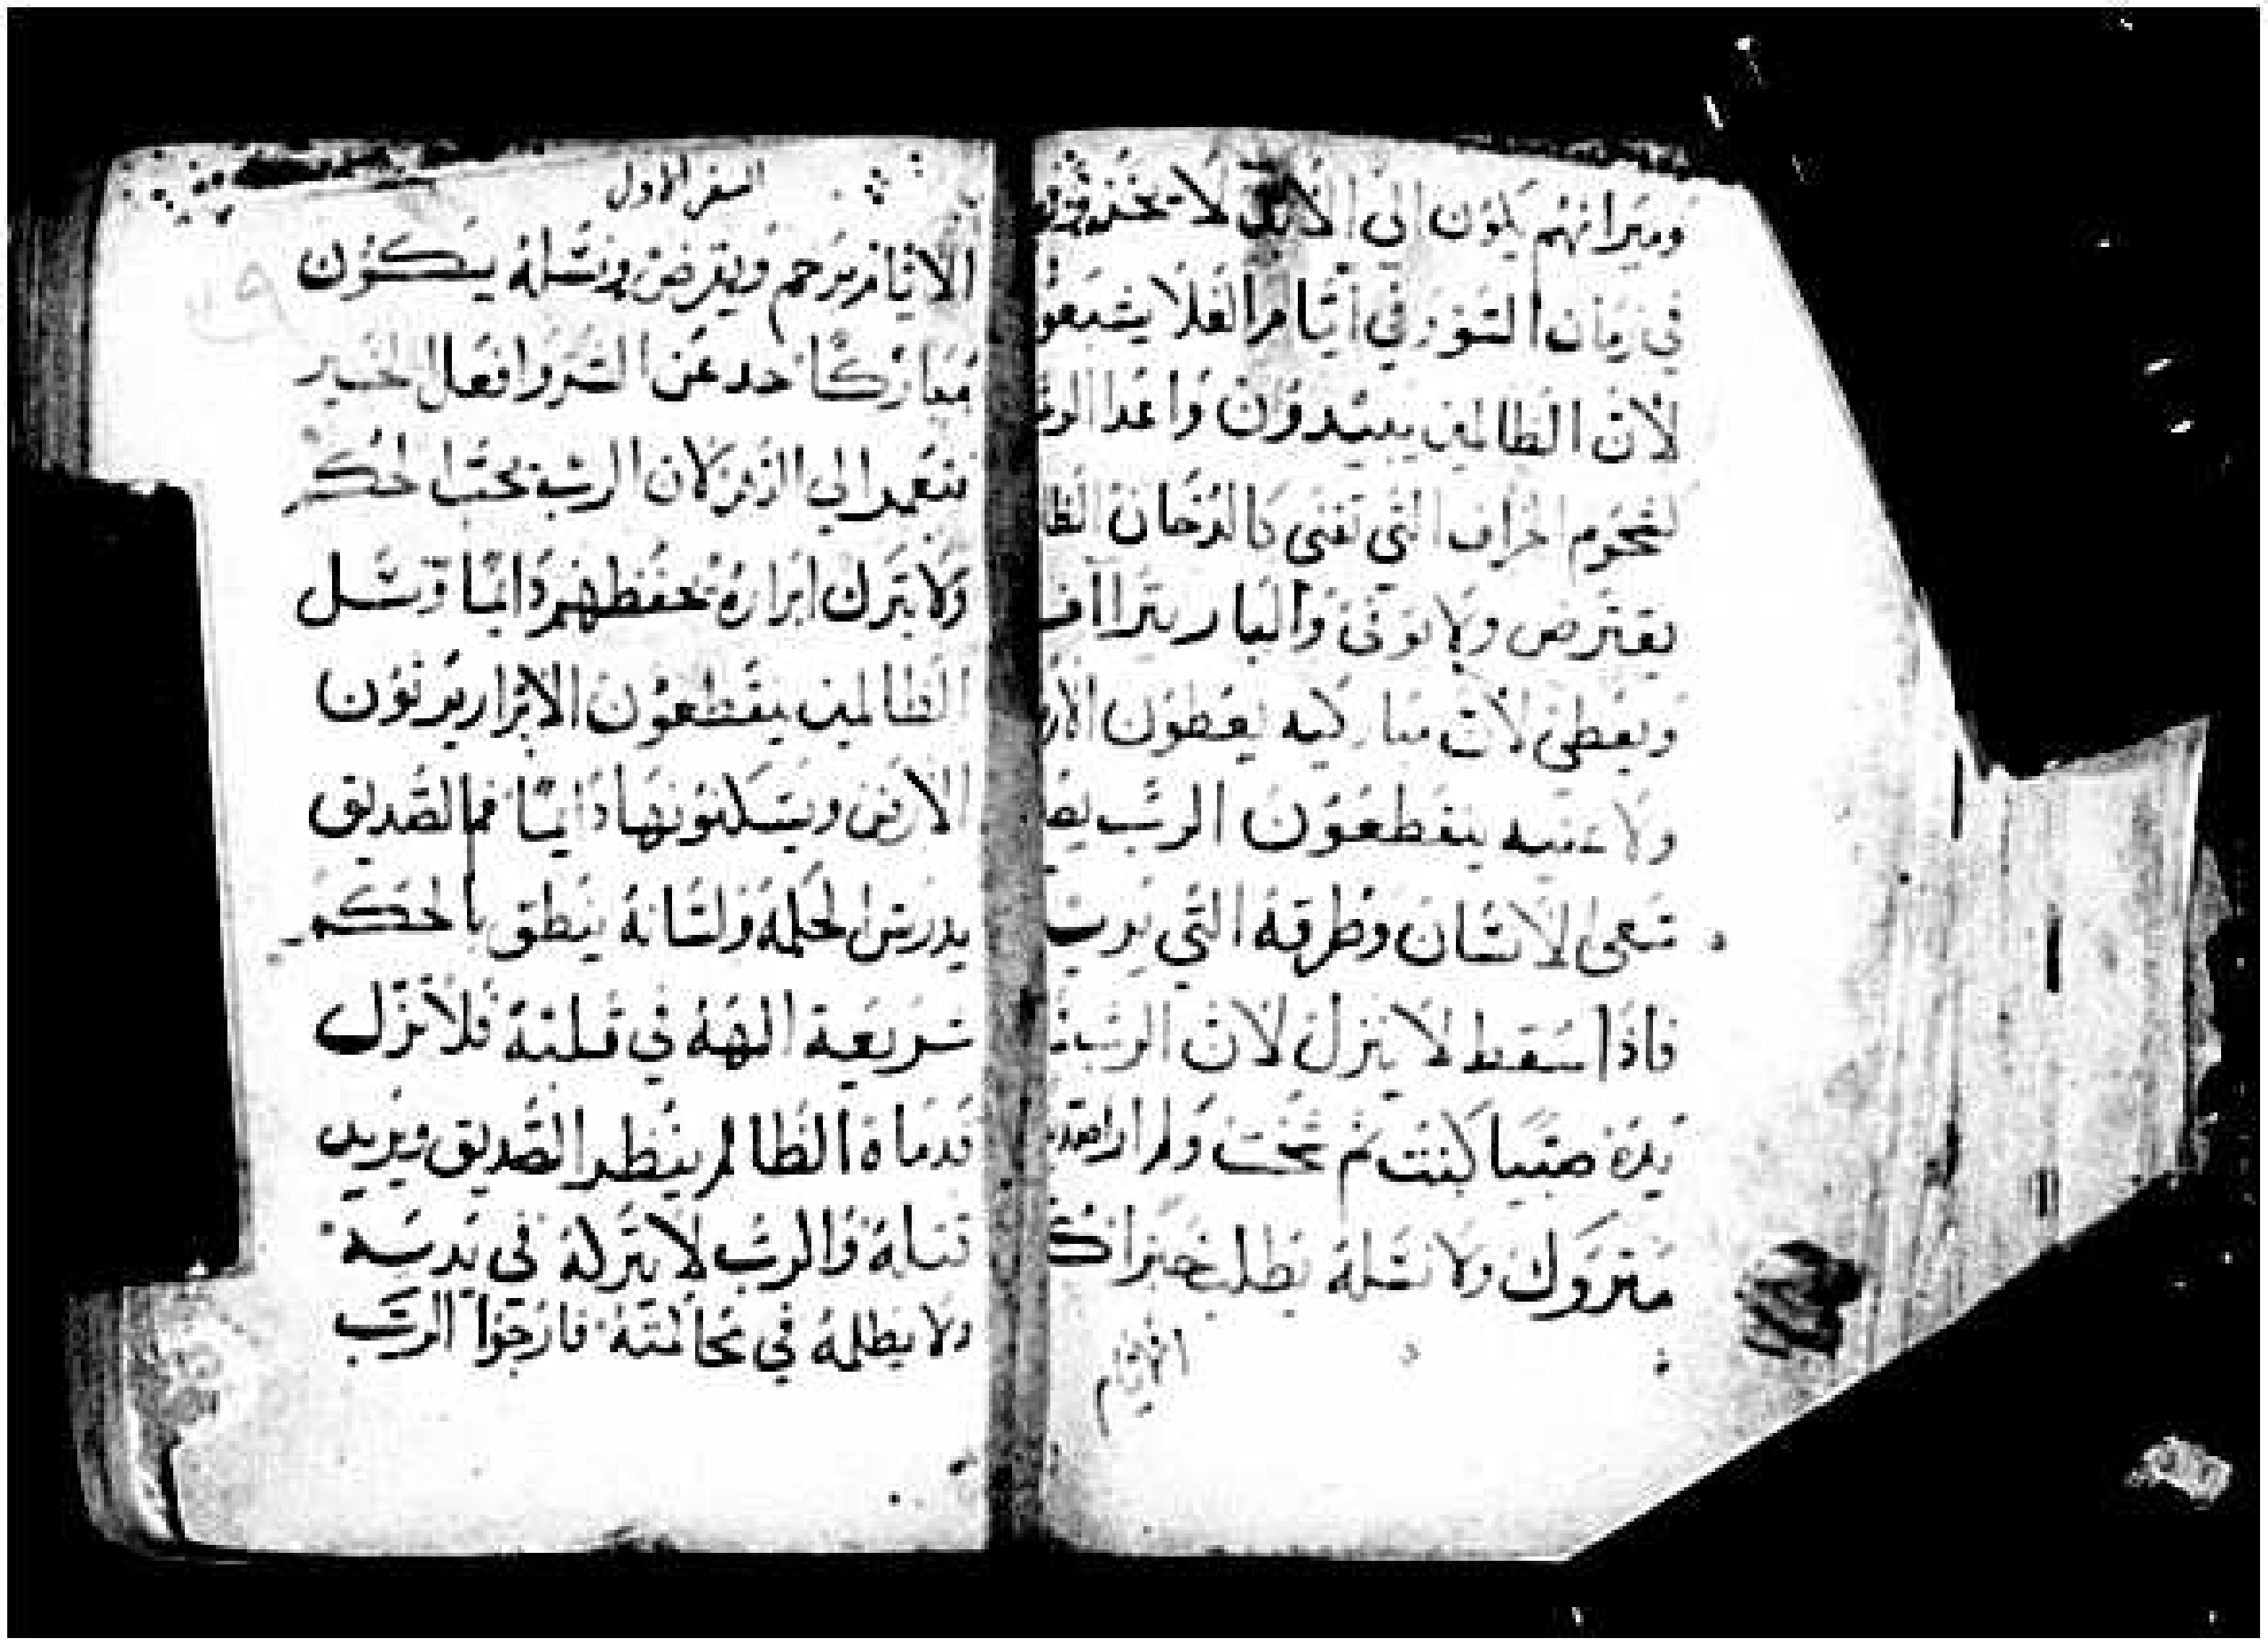 وميراثهم يكون الى الابد لا يخزون
في زمان السوء وفي ايام الغلا يشبعو
لان الظالمين يبيدون واعدا الرب
لشحوم الخراف التي تفنى كالدخان الظا
يقترض ولا يوفى والبار يتراف
ويعطي لان مباركيه يعطون الار
ولاعنيه ينقطعون الرب يص
سعى الانسان وطرقه التي يرت
فاذا سقط لا ينزل لان الرب
يده صبيا كنت ثم شخت ولم ار
متروك ولا نسله يطلب خبزا ك
السفر الاول
يرحم ويقرض ونسله يكون
مباركا حد عن الشر وافعل الخير
الي لان الرب يحب الحكم
ولا يترك ابراره يحفظهم دايما ونسل
الظالمين ينقطعون الابرار يرثون
الارض ويسكنونها دايما فم الصديق
يدرس الحكمة ولسانه ينطق بالحكم
شريعة الهه في قلبه فلا تزل
قدماه الظالم ينظر الصديق ويريد
قتله والرب لا يتركه في يديه
ولا يظلمه في محاكمته فارجوا الرب